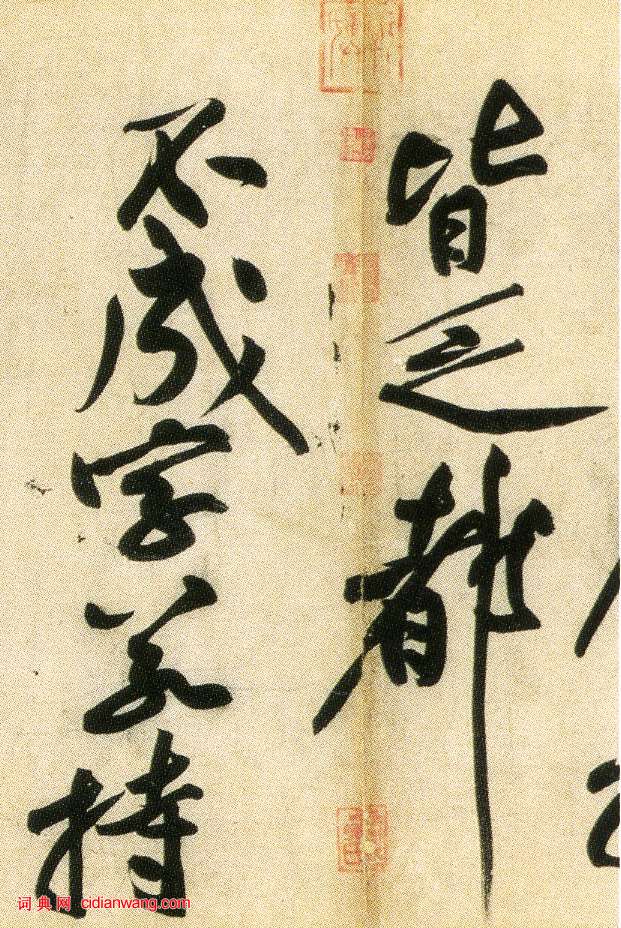 皆乏都
不成字若持
词典网 cidianwang.com